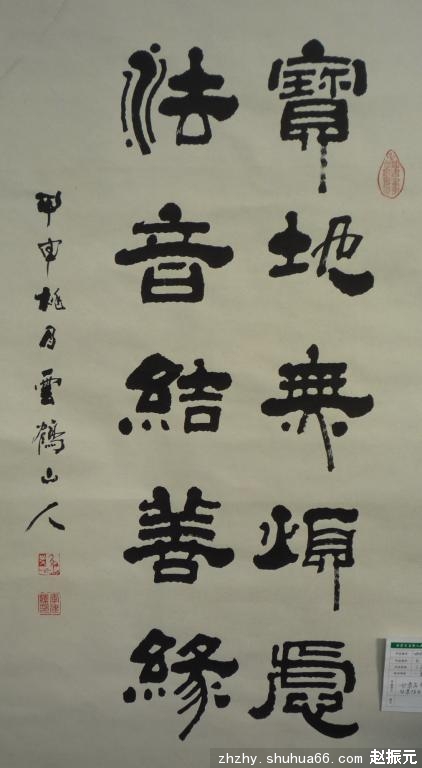 寶地無煩慮
法音結善緣
甲申桃月雲鶴山人
zhzhy.shuhua66.com 赵振元